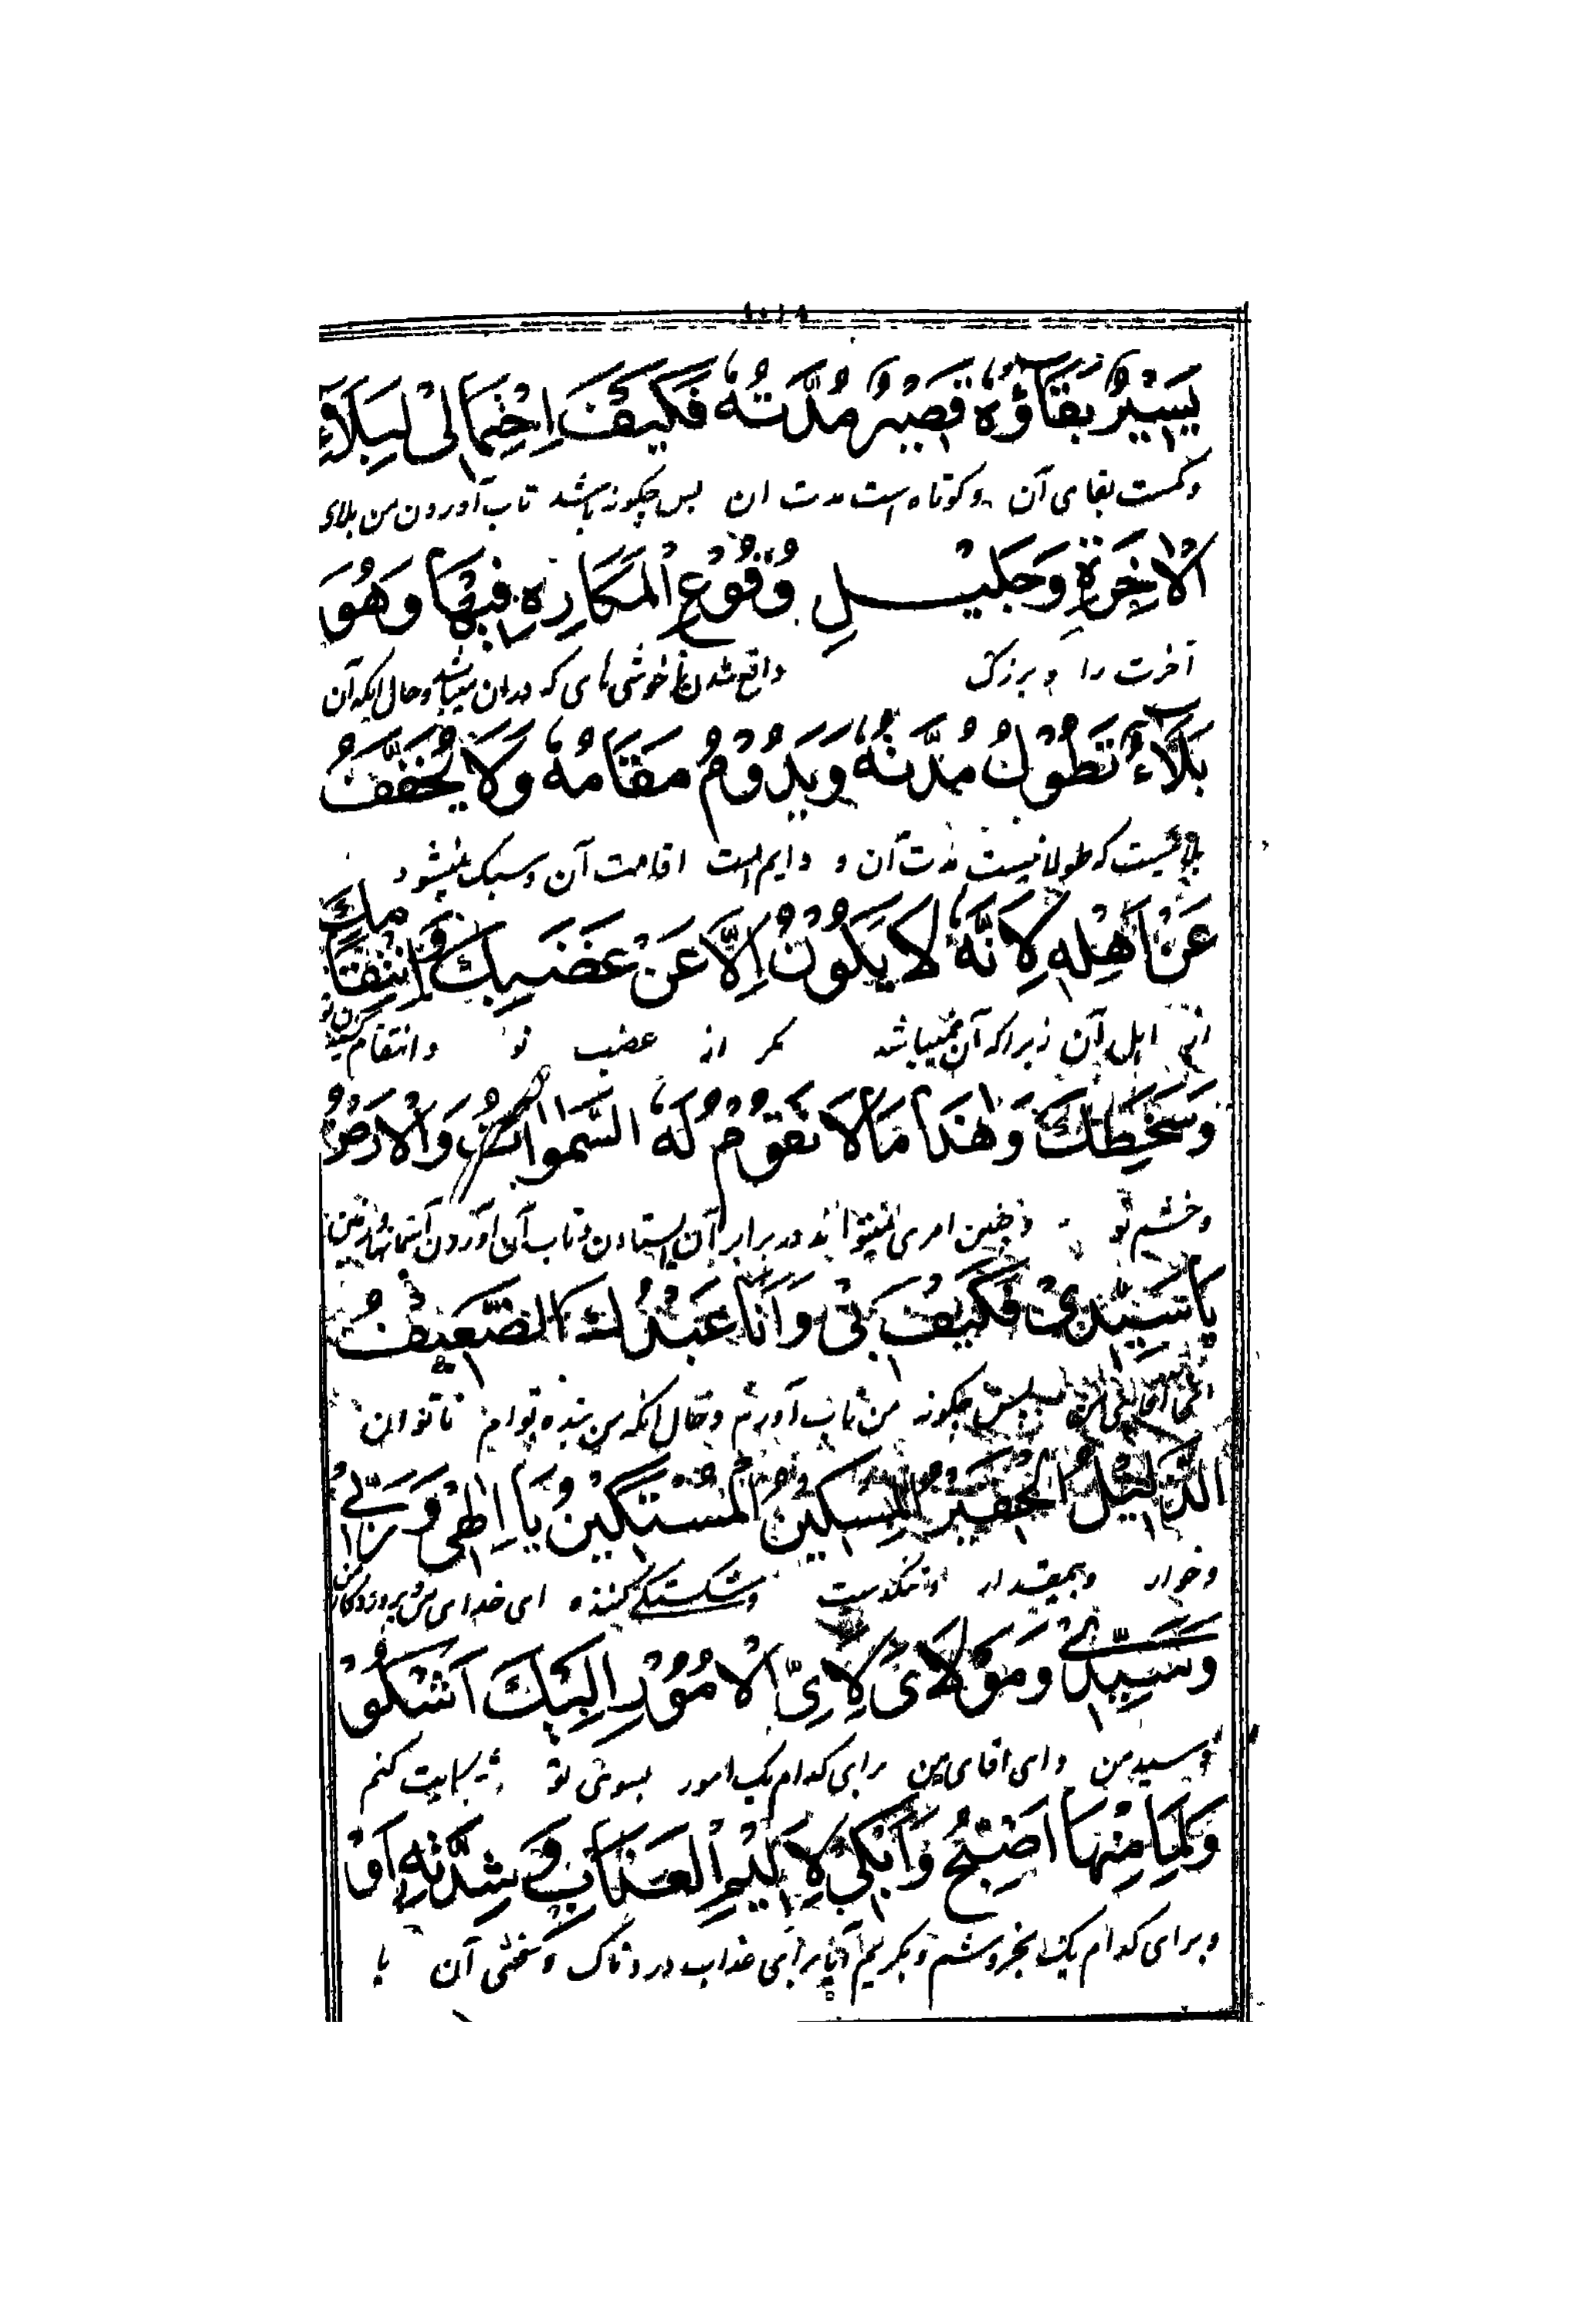 يَسِيْرٌ بَقَاؤُهُ قَصِيْرٌ مُدَّتُهُ فَكَيْفَ اِحْتِمَالِيْ لِبَلَاءِ
وکمست بقای آن وکوتاه است مدت ان پس چکونه باشد تاب آوردن من بلای
الْاٰخِرَةِ وَجَلِيْلِ وُقُوْعِ الْمَكَارِهِ فِيْهَا وَهُوَ
آخرت را و بزرک واقع شدن ناخوشی های که دران میباشد وحال انکه آن
بَلَاءٌ تَطُوْلُ مُدَّتُهُ وَيَدُوْمُ مَقَامُهُ وَلَا يُخَفَّفُ
بلائیست که طولانیست مدت آن و دایم است اقامت آن وسبک نمیشود
عَنْ اَهْلِهِ لِاَنَّهُ لَا يَكُوْنُ اِلَّا عَنْ غَضَبِكَ وَ اِنْتِقَامِكَ
از اهل آن زیراکه آن نمیباشد مکر از غضب تو وانتقام
وَسَخَطِكَ وَهٰذَا مَا لَا تَقُوْمُ لَهُ السَّمٰوَاتُ وَالْاَرْضُ
وخشم تو و چنین امری نمیتوانند در برابر آن ایستادن وتاب آن آوردن آسمانها وزمین
يَا سَيِّدِيْ فَكَيْفَ بِيْ وَاَنَا عَبْدُكَ الضَّعِيْفُ
ای اقای من پس چکونه من تاب آورم وحال انکه من بنده توام ناتوان
الذَّلِيْلُ الْحَقِيْرُ الْمِسْكِيْنُ الْمُسْتَكِيْنُ يَا اِلٰهِيْ وَ رَبِّيْ
وخوار وبیمقدار وتنکدست وشکستکی کننده ای خدای من وپروردکار من
وَسَيِّدِيْ وَمَوْلَايَ لِاَيِّ الْاُمُوْرِ اِلَيْكَ اَشْكُوْ
وسید من وای اقای من برای کدام یک امور بسوی تو شکایت کنم
وَلِمَا مِنْهَا اَضِجُّ وَاَبْكِيْ لِاَلِيْمِ الْعَذَابِ وَ شِدَّتِهِ اَوْ
وبرای کدام یک بخروشم وبکریم آیا برای عذاب دردناک و سختی آن یا